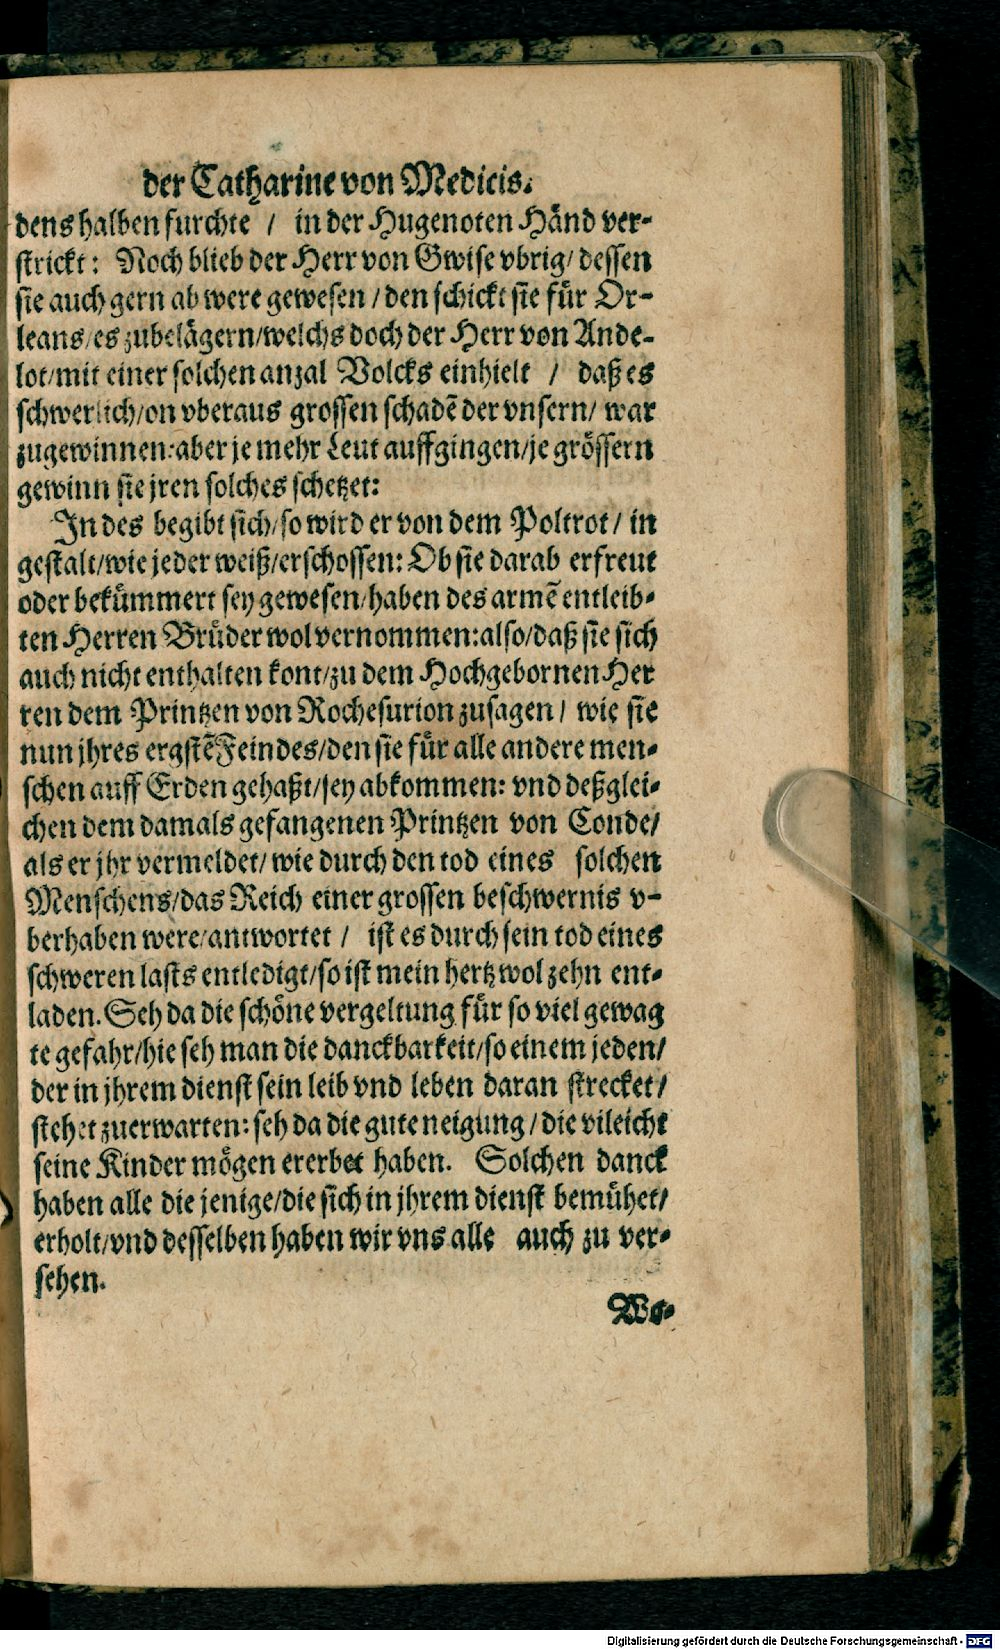 der Catharine von Medicis.
dens halben furchte / in der Hugenoten Händ ver-
strickt: Noch blieb der Herr von Gwise vbrig/ dessen
sie auch gern ab were gewesen / den schickt sie für Or-
leans/es zubelägern/welchs doch der Herr von Ande-
lot/mit einer solchen anzal Volcks einhielt / daß es
schwerlich/on vberaus grossen schadē der vnsern/ war
zugewinnen:aber je mehr Leut auffgingen/je grössern
gewinn sie jren solches schetzet:
In des begibt sich/so wird er von dem Poltrot/ in
gestalt/wie jeder weiß/erschossen: Ob sie darab erfreut
oder bekümmert sey gewesen/haben des armē entleib-
ten Herren Brüder wol vernommen:also/daß sie sich
auch nicht enthalten kont/zu dem Hochgebornen Her
ren dem Printzen von Rochesurion zusagen / wie sie
nun jhres ergstē Feindes/den sie für alle andere men-
schen auff Erden gehaßt/sey abkommen: vnd deßglei-
chen dem damals gefangenen Printzen von Conde/
als er jhr vermeldet/ wie durch den tod eines solchen
Menschens/das Reich einer grossen beschwernis v-
berhaben were/antwortet / ist es durch sein tod eines
schweren lasts entledigt/so ist mein hertz wol zehn ent-
laden. Seh da die schöne vergeltung für so viel gewag
te gefahr/hie seh man die danckbarkeit/so einem jeden/
der in jhrem dienst sein leib vnd leben daran strecket/
stehet zuerwarten: seh da die gute neigung / die vileicht
seine Kinder mögen ererbet haben. Solchen danck
haben alle die jenige/die sich in jhrem dienst bemühet/
erholt/vnd desselben haben wir vns alle auch zu ver-
sehen.
We-
Digitalisierung gefördert durch die Deutsche Forschungsgemeinschaft - DFG